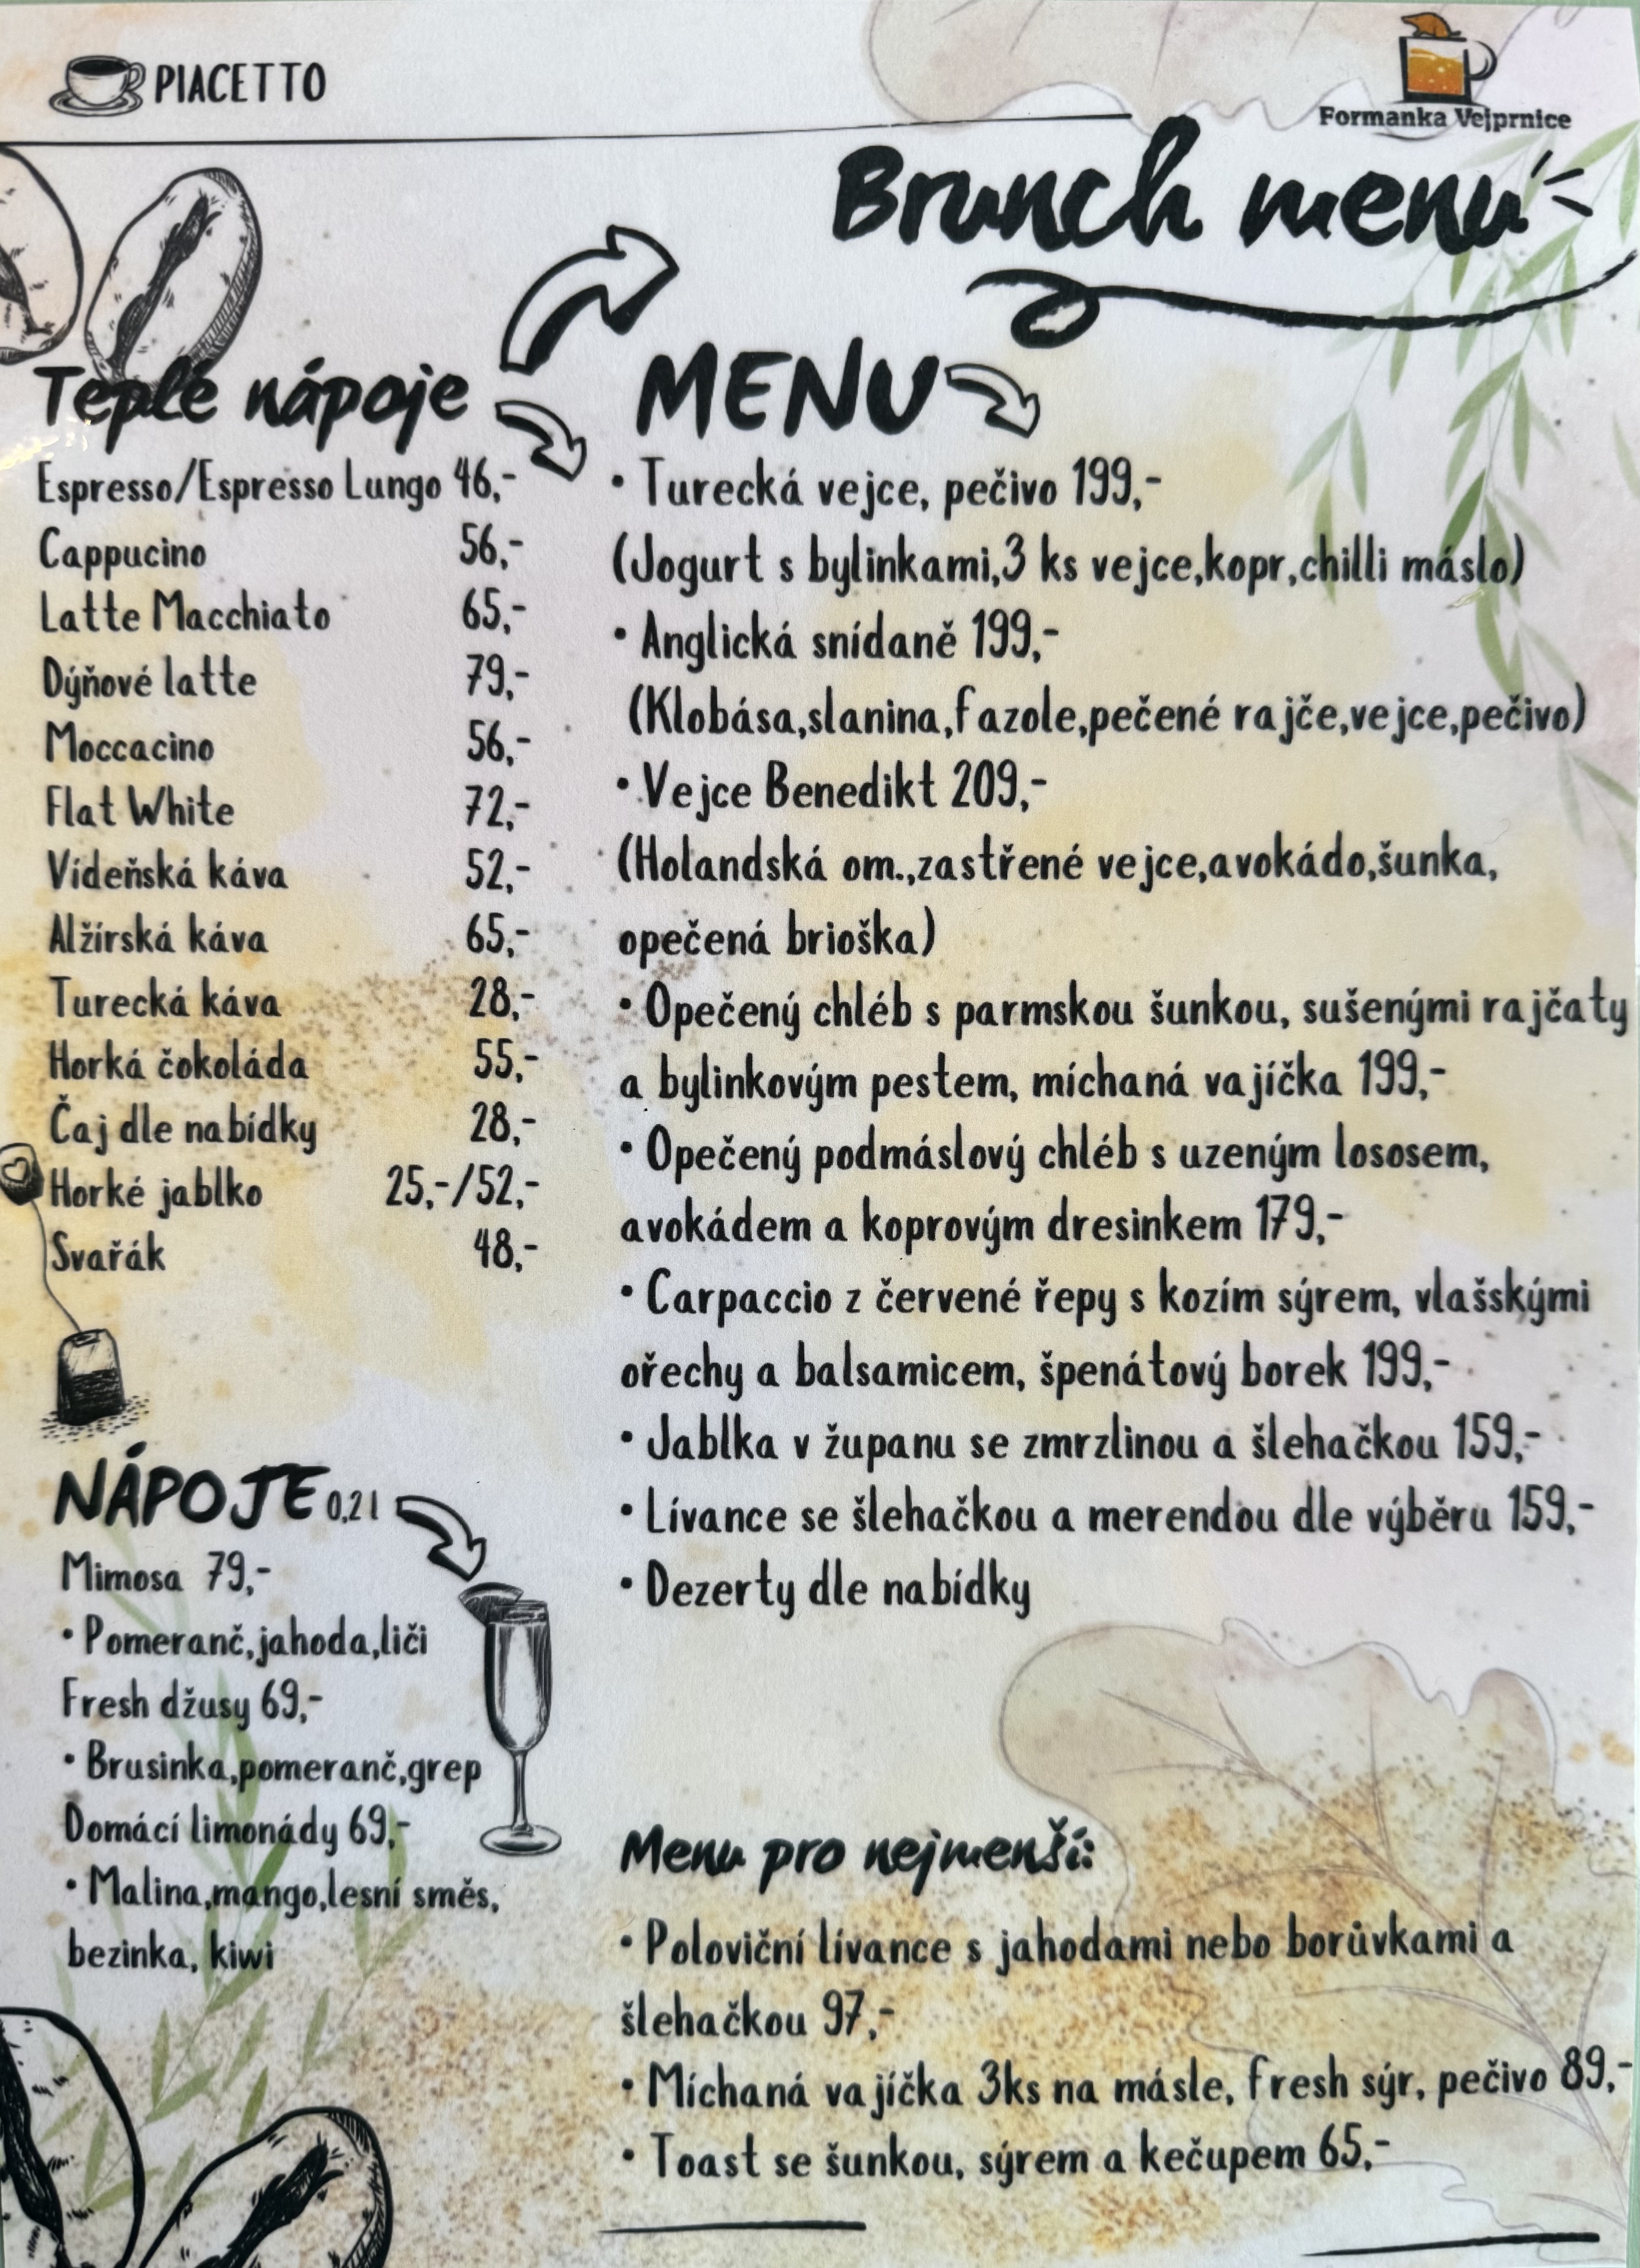 PIACETTO
Formanka Vejprnice
Brunch menu
Teplé nápoje
Espresso/Espresso Lungo 46,-
Cappucino 56,-
Latte Macchiato 65,-
Dýňové latte 79,-
Moccacino 56,-
Flat White 72,-
Vídeňská káva 52,-
Alžírská káva 65,-
Turecká káva 28,-
Horká čokoláda 55,-
Čaj dle nabídky 28,-
Horké jablko 25,-/52,-
Svařák 48,-
NÁPOJE 0,2 l
Mimosa 79,-
• Pomeranč,jahoda,liči
Fresh džusy 69,-
• Brusinka,pomeranč,grep
Domácí limonády 69,-
• Malina,mango,lesní směs,
bezinka, kiwi
MENU
• Turecká vejce, pečivo 199,-
(Jogurt s bylinkami,3 ks vejce,kopr,chilli máslo)
• Anglická snídaně 199,-
(Klobása,slanina,fazole,pečené rajče,vejce,pečivo)
• Vejce Benedikt 209,-
(Holandská om.,zastřené vejce,avokádo,šunka,
opečená brioška)
• Opečený chléb s parmskou šunkou, sušenými rajčaty
a bylinkovým pestem, míchaná vajíčka 199,-
• Opečený podmáslový chléb s uzeným lososem,
avokádem a koprovým dresinkem 179,-
• Carpaccio z červené řepy s kozím sýrem, vlašskými
ořechy a balsamicem, špenátový borek 199,-
• Jablka v županu se zmrzlinou a šlehačkou 159,-
• Lívance se šlehačkou a merendou dle výběru 159,-
• Dezerty dle nabídky
Menu pro nejmenší:
• Poloviční lívance s jahodami nebo borůvkami a
šlehačkou 97,-
• Míchaná vajíčka 3ks na másle, fresh sýr, pečivo 89,-
• Toast se šunkou, sýrem a kečupem 65,-